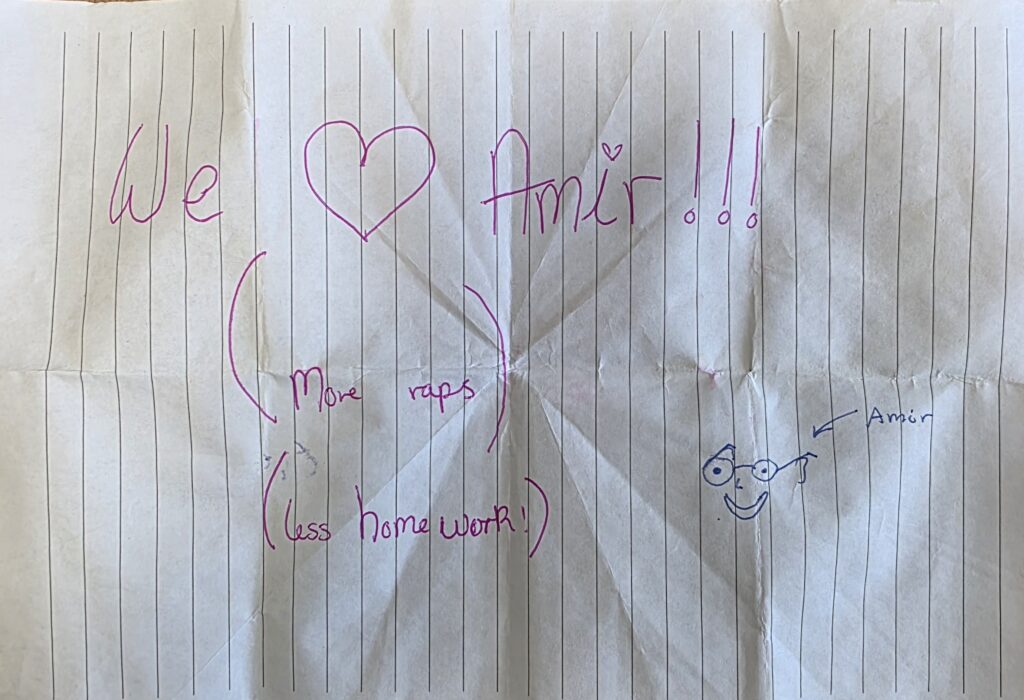 We ♡ Amir!!!
(More raps)
(less homework!)
Amir